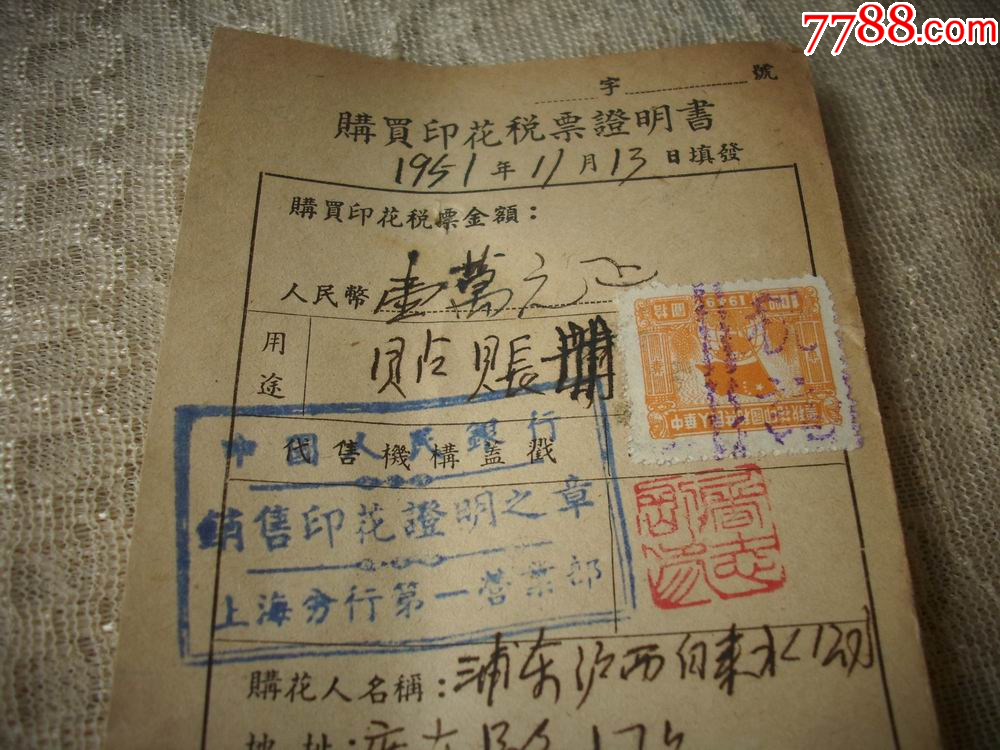 7788.com
字 號
購買印花税票證明書
1951年11月13日填發
購買印花税票金額：
人民幣 壹萬元正
用途 貼賬冊
代售機構蓋戳
中國人民銀行
銷售印花證明之章
上海分行第一營業部
1949
中華人民共和國印花稅票
購花人名稱：浦东沪西自来水公司
地址：